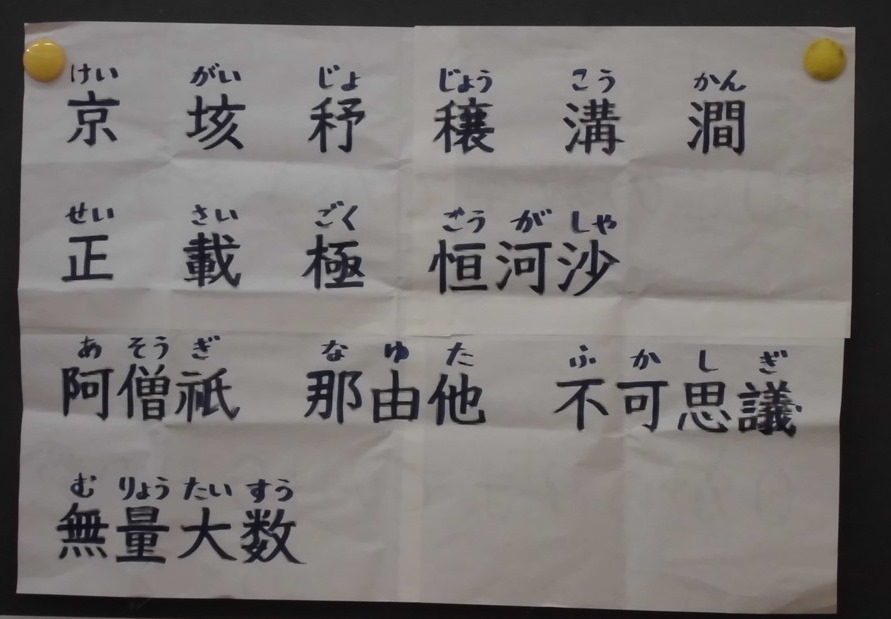 けい がい じょ じょう こう かん
京 垓 秄 穣 溝 澗
せい さい ごく ごう が しゃ
正 載 極 恒河沙
あ そう ぎ な ゆ た ふ か し ぎ
阿僧祇 那由他 不可思議
む りょう たい すう
無量大数